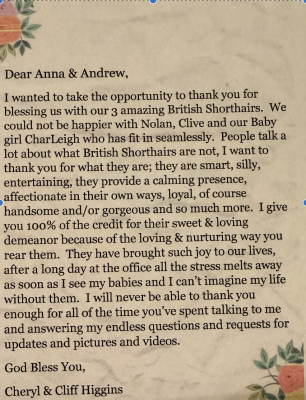 Dear Anna & Andrew,
I wanted to take the opportunity to thank you for
blessing us with our 3 amazing British Shorthairs. We
could not be happier with Nolan, Clive and our Baby
girl CharLeigh who has fit in seamlessly. People talk a
lot about what British Shorthairs are not, I want to
thank you for what they are; they are smart, silly,
entertaining, they provide a calming presence,
affectionate in their own ways, loyal, of course
handsome and/or gorgeous and so much more. I give
you 100% of the credit for their sweet & loving
demeanor because of the loving & nurturing way you
rear them. They have brought such joy to our lives,
after a long day at the office all the stress melts away
as soon as I see my babies and I can't imagine my life
without them. I will never be able to thank you
enough for all of the time you've spent talking to me
and answering my endless questions and requests for
updates and pictures and videos.
God Bless You,
Cheryl & Cliff Higgins